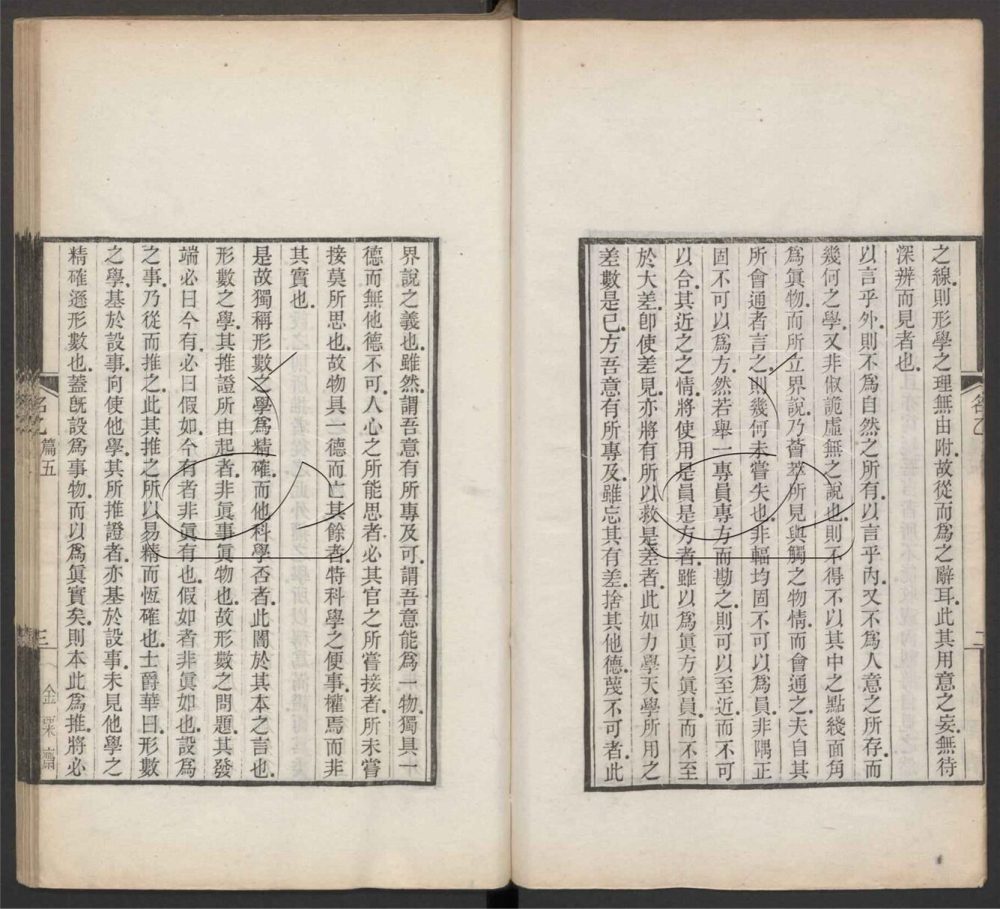 之線則形學之理無由附故從而爲之辭耳此其用意之妄無待
深辨而見者也
以言乎外則不爲自然之所有以言乎內又不爲人意之所存而
幾何之學又非俶詭虛無之說也則不得不以其中之點綫面角
爲眞物而所立界說乃薈萃所見與觸之物情而會通之夫自其
所會通者言之則幾何未嘗失也非輻均固不可以爲員非隅正
固不可以爲方然若舉一專員專方而勘之則可以至近而不可
以合其近之之情將使用是員是方者雖以爲眞方眞員而不至
於大差卽使差見亦將有所以救是差者此如力學天學所用之
差數是已方吾意有所專及雖忘其有差捨其他德蔑不可者此
名乙
二
界說之義也雖然謂吾意有所專及可謂吾意能爲一物獨具一
德而無他德不可人心之所能思者必其官之所嘗接者所未嘗
接莫所思也故物具一德而亡其餘者特科學之便事權焉而非
其實也
是故獨稱形數之學爲精確而他科學否者此闇於其本之言也
形數之學其推證所由起者非眞事眞物也故形數之問題其發
端必曰今有必曰假如今有者非眞有也假如者非眞如也設爲
之事乃從而推之此其推之所以易精而恆確也士爵華曰形數
之學基於設事向使他學其所推證者亦基於設事未見他學之
精確遜形數也蓋旣設爲事物而以爲眞實矣則本此爲推將必
名乙 篇五
三
金粟齋